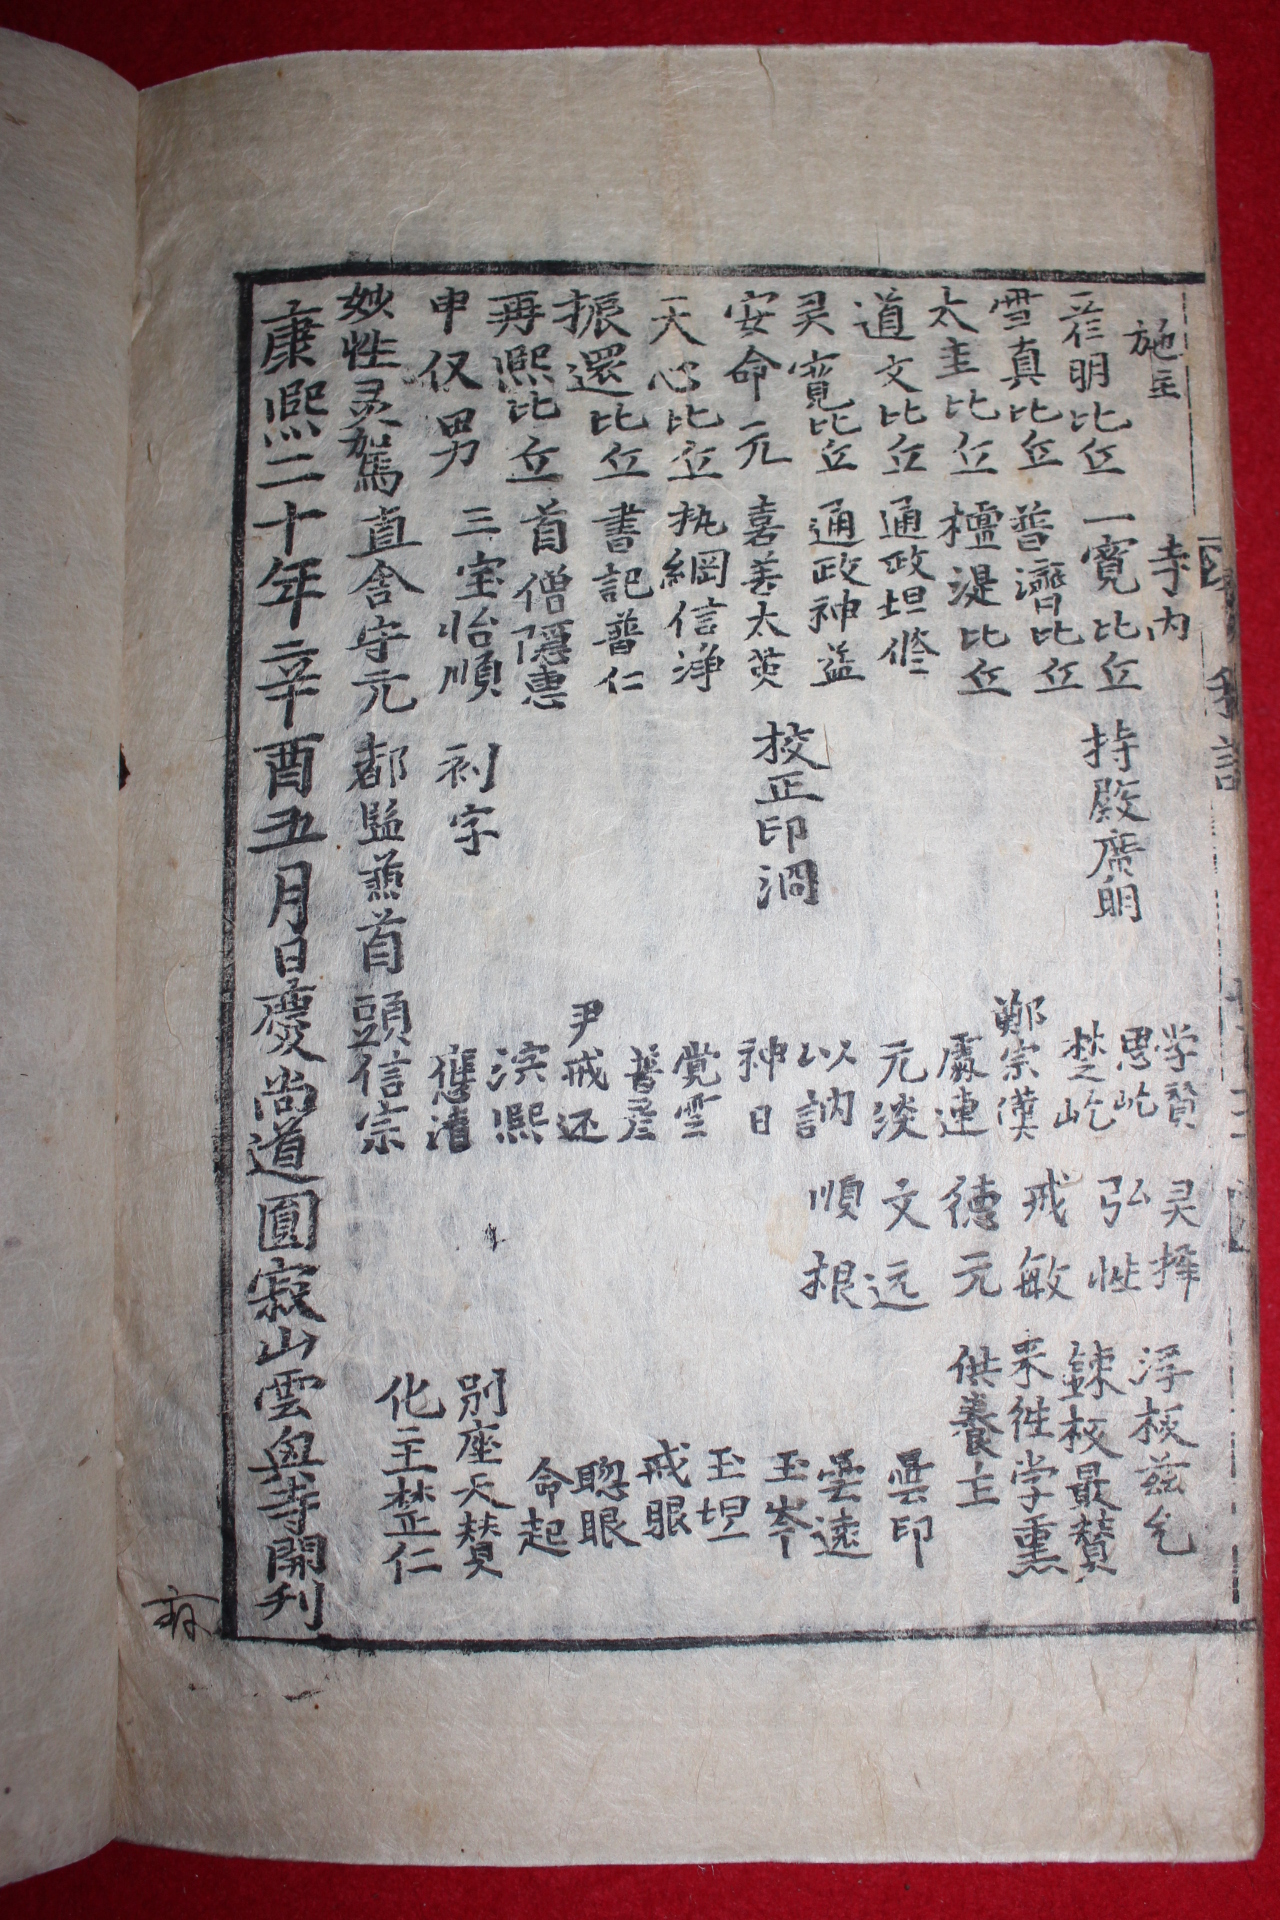 施主 寺内
学贊 灵擇
明比丘 一寬比丘 持殿广明 思屹 弘性 浮板玆允
雪真比丘 普濟比丘 楚屹 戒敏 鍊板最贊
太圭比丘 檀湜比丘 鄭宗漢 德元 来往学熏
道文比丘 通政坦修 處連 文远 供養主
灵寬比丘 通政神益 元淡 順根 曇印
安命元 嘉善太英 校正印洞 以訥 雲遠
天心比丘 执綱信淨 神日 玉岑
振還比丘 書記普仁 覚雲 玉坦
再熙比丘 首僧隱惠 普彦 戒眼
申仅男 三宝怡順 刻字 尹戒还 聦眼
濱熙 命起
應濬 別座天贊
妙性灵駕 直舍守元 都監兼首頭信宗 化主楚仁
康熙二十年辛酉五月日慶尚道圎寂山雲興寺開刋